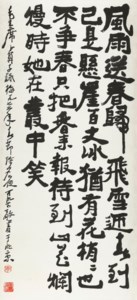 風雨送春歸飛雪迎春到
已是懸崖百丈冰猶有花枝俏俏也
不争春只把春来報待到山花爛
漫時她在叢中笑
毛主席卜算子詠梅